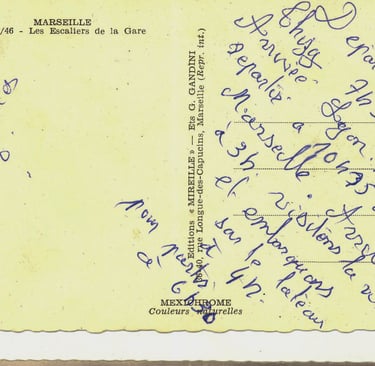 MARSEILLE
/46 - Les Escaliers de la Gare
Editions « MIREILLE » — Ets G. GANDINI
rue Longue-des-Capucins, Marseille (Repr. int.)
MEXICHROME
Couleurs naturelles
Dépar
7h
Arrivée Lyon
repartis à 10h35
Marseille Arr
à 3h
et visitons la v
et embarquons
sur le bateau
à 4h.
nous partons
à 6h30